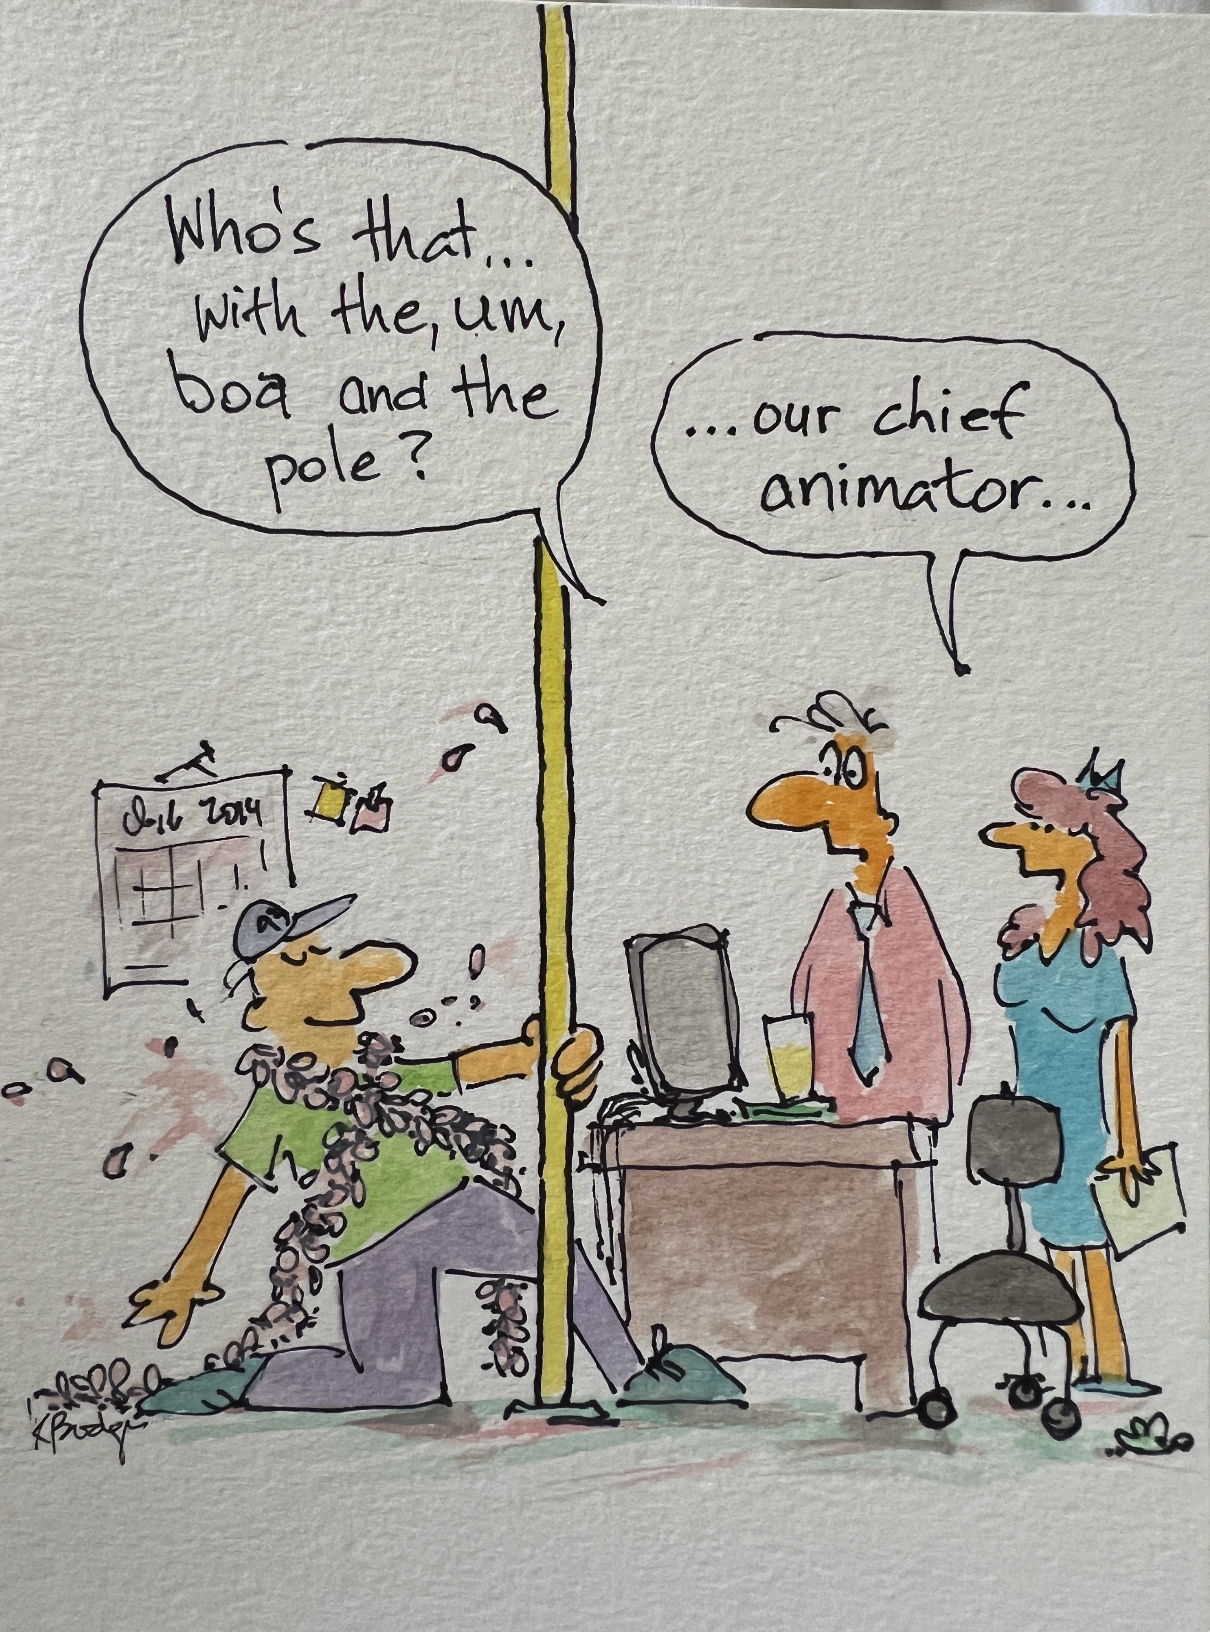 Who's that...
with the, um,
boa and the
pole?
...our chief
animator...
2014